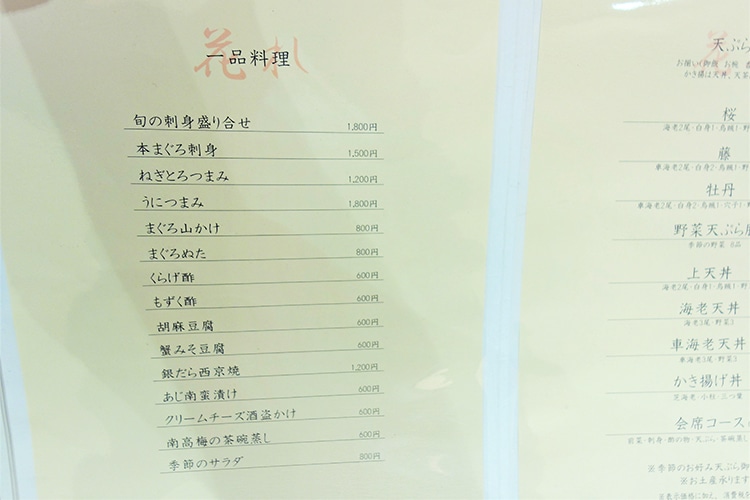 花札
一品料理
旬の刺身盛り合せ 1,800円
本まぐろ刺身 1,500円
ねぎとろつまみ 1,200円
うにつまみ 1,800円
まぐろ山かけ 800円
まぐろぬた 800円
くらげ酢 600円
もずく酢 600円
胡麻豆腐 600円
蟹みそ豆腐 600円
銀だら西京焼 1,200円
あじ南蛮漬け 600円
クリームチーズ酒盗かけ 600円
南高梅の茶碗蒸し 600円
季節のサラダ 800円
天ぷら
お揃い(御飯 お椀
かき揚は天丼、天茶
桜
海老2尾・白身1・烏賊1・野
藤
車海老2尾・白身2・烏賊1・野
牡丹
車海老2尾・白身2・烏賊1・穴子1・野
野菜天ぷら
季節の野菜 8品
上天丼
海老2尾・白身1・烏賊1・野
海老天丼
海老3尾・野菜3
車海老天丼
車海老3尾・野菜3
かき揚げ丼
芝海老・小柱 三つ葉
会席コース
前菜・刺身・酢の物・天ぷら・茶碗蒸し
※季節のお好み天ぷら御
※お土産承ります
※表示価格に加え、消費税